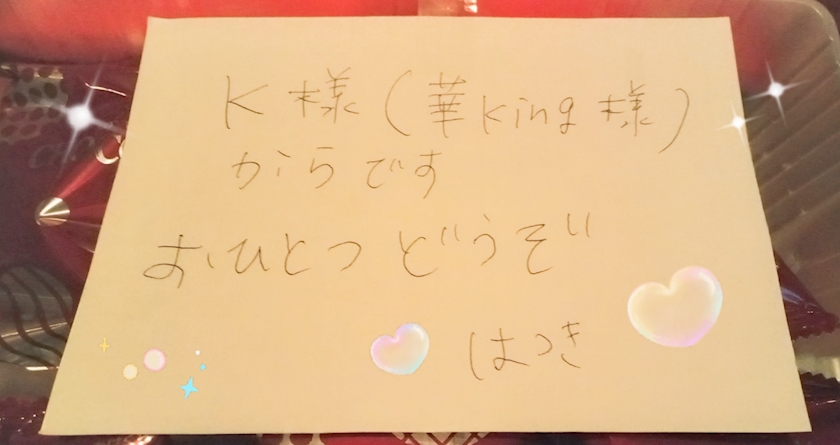 K様(華King様)
からです
おひとつどうぞ
はつき